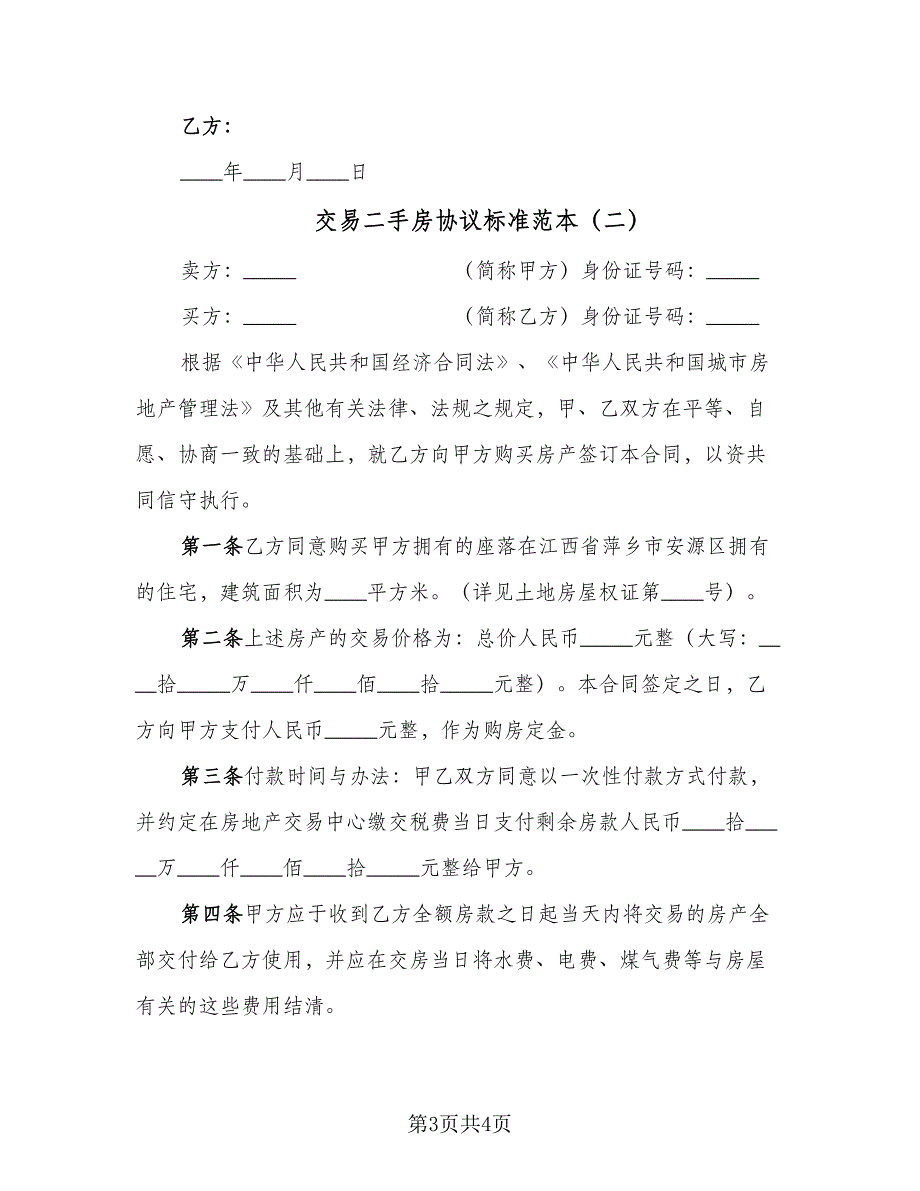 乙方：
____年____月____日
交易二手房协议标准范本（二）
卖方：_____ （简称甲方）身份证号码：_____
买方：_____ （简称乙方）身份证号码：_____
根据《中华人民共和国经济合同法》、《中华人民共和国城市房
地产管理法》及其他有关法律、法规之规定，甲、乙双方在平等、自
愿、协商一致的基础上，就乙方向甲方购买房产签订本合同，以资共
同信守执行。
第一条乙方同意购买甲方拥有的座落在江西省萍乡市安源区拥有
的住宅，建筑面积为____平方米。（详见土地房屋权证第____号）。
第二条上述房产的交易价格为：总价人民币_____元整（大写：__
__拾_____万____仟____佰____拾_____元整）。本合同签定之日，乙
方向甲方支付人民币_____元整，作为购房定金。
第三条付款时间与办法：甲乙双方同意以一次性付款方式付款，
并约定在房地产交易中心缴交税费当日支付剩余房款人民币____拾___
__万____仟____佰____拾_____元整给甲方。
第四条甲方应于收到乙方全额房款之日起当天内将交易的房产全
部交付给乙方使用，并应在交房当日将水费、电费、煤气费等与房屋
有关的这些费用结清。
第3页共4页